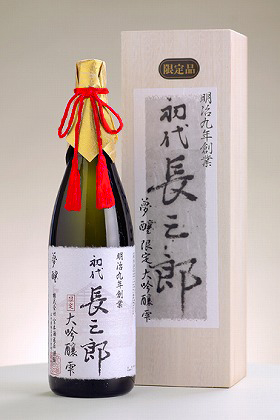 限定品
明治九年創業
初代
長三郎
夢醸 限定大吟醸 雫
明治九年創業
初代
長三郎
限定
大吟醸 雫
夢醸